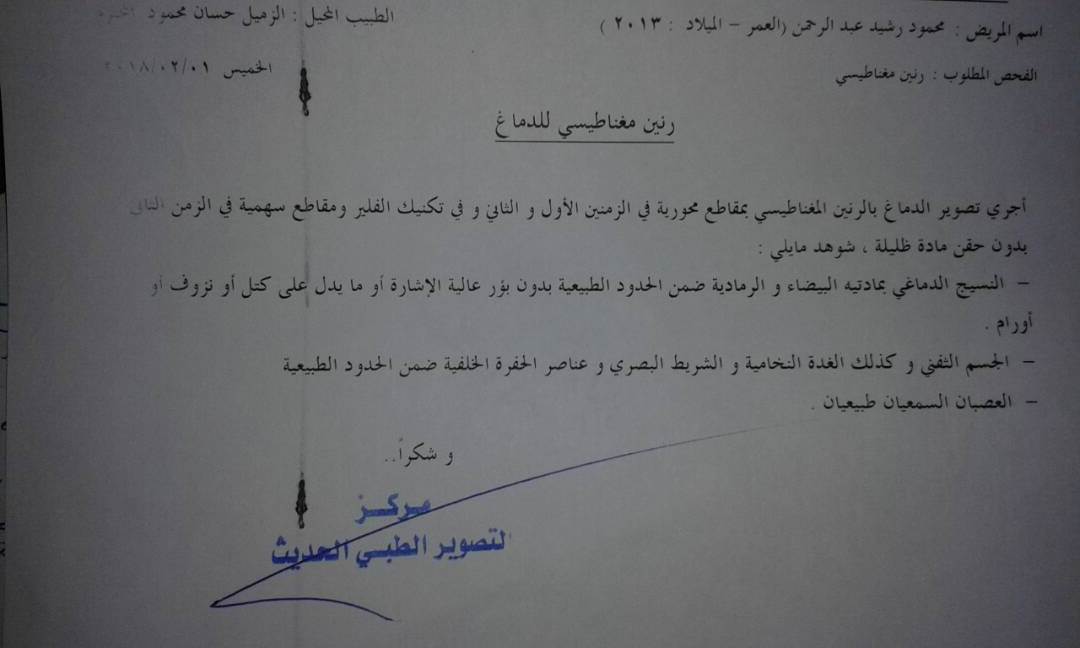 اسم المريض : محمود رشيد عبد الرحمن (العمر – الميلاد : ٢٠١٣ )
الطبيب المحيل : الزميل حسان محمود
الفحص المطلوب : رنين مغناطيسي
الخميس ٢٠١٨/٠٢/٠١
رنين مغناطيسي للدماغ
أجري تصوير الدماغ بالرنين المغناطيسي بمقاطع محورية في الزمنين الأول و الثاني و في تكنيك الفلير ومقاطع سهمية في الزمن الثاني
بدون حقن مادة ظليلة ، شوهد مايلي :
– النسيج الدماغي بمادتيه البيضاء و الرمادية ضمن الحدود الطبيعية بدون بؤر عالية الإشارة أو ما يدل على كتل أو نزوف أو
أورام .
– الجسم الثفني و كذلك الغدة النخامية و الشريط البصري و عناصر الحفرة الخلفية ضمن الحدود الطبيعية
– العصبان السمعيان طبيعيان .
و شكراً..
مركز
لتصوير الطبي الحديث